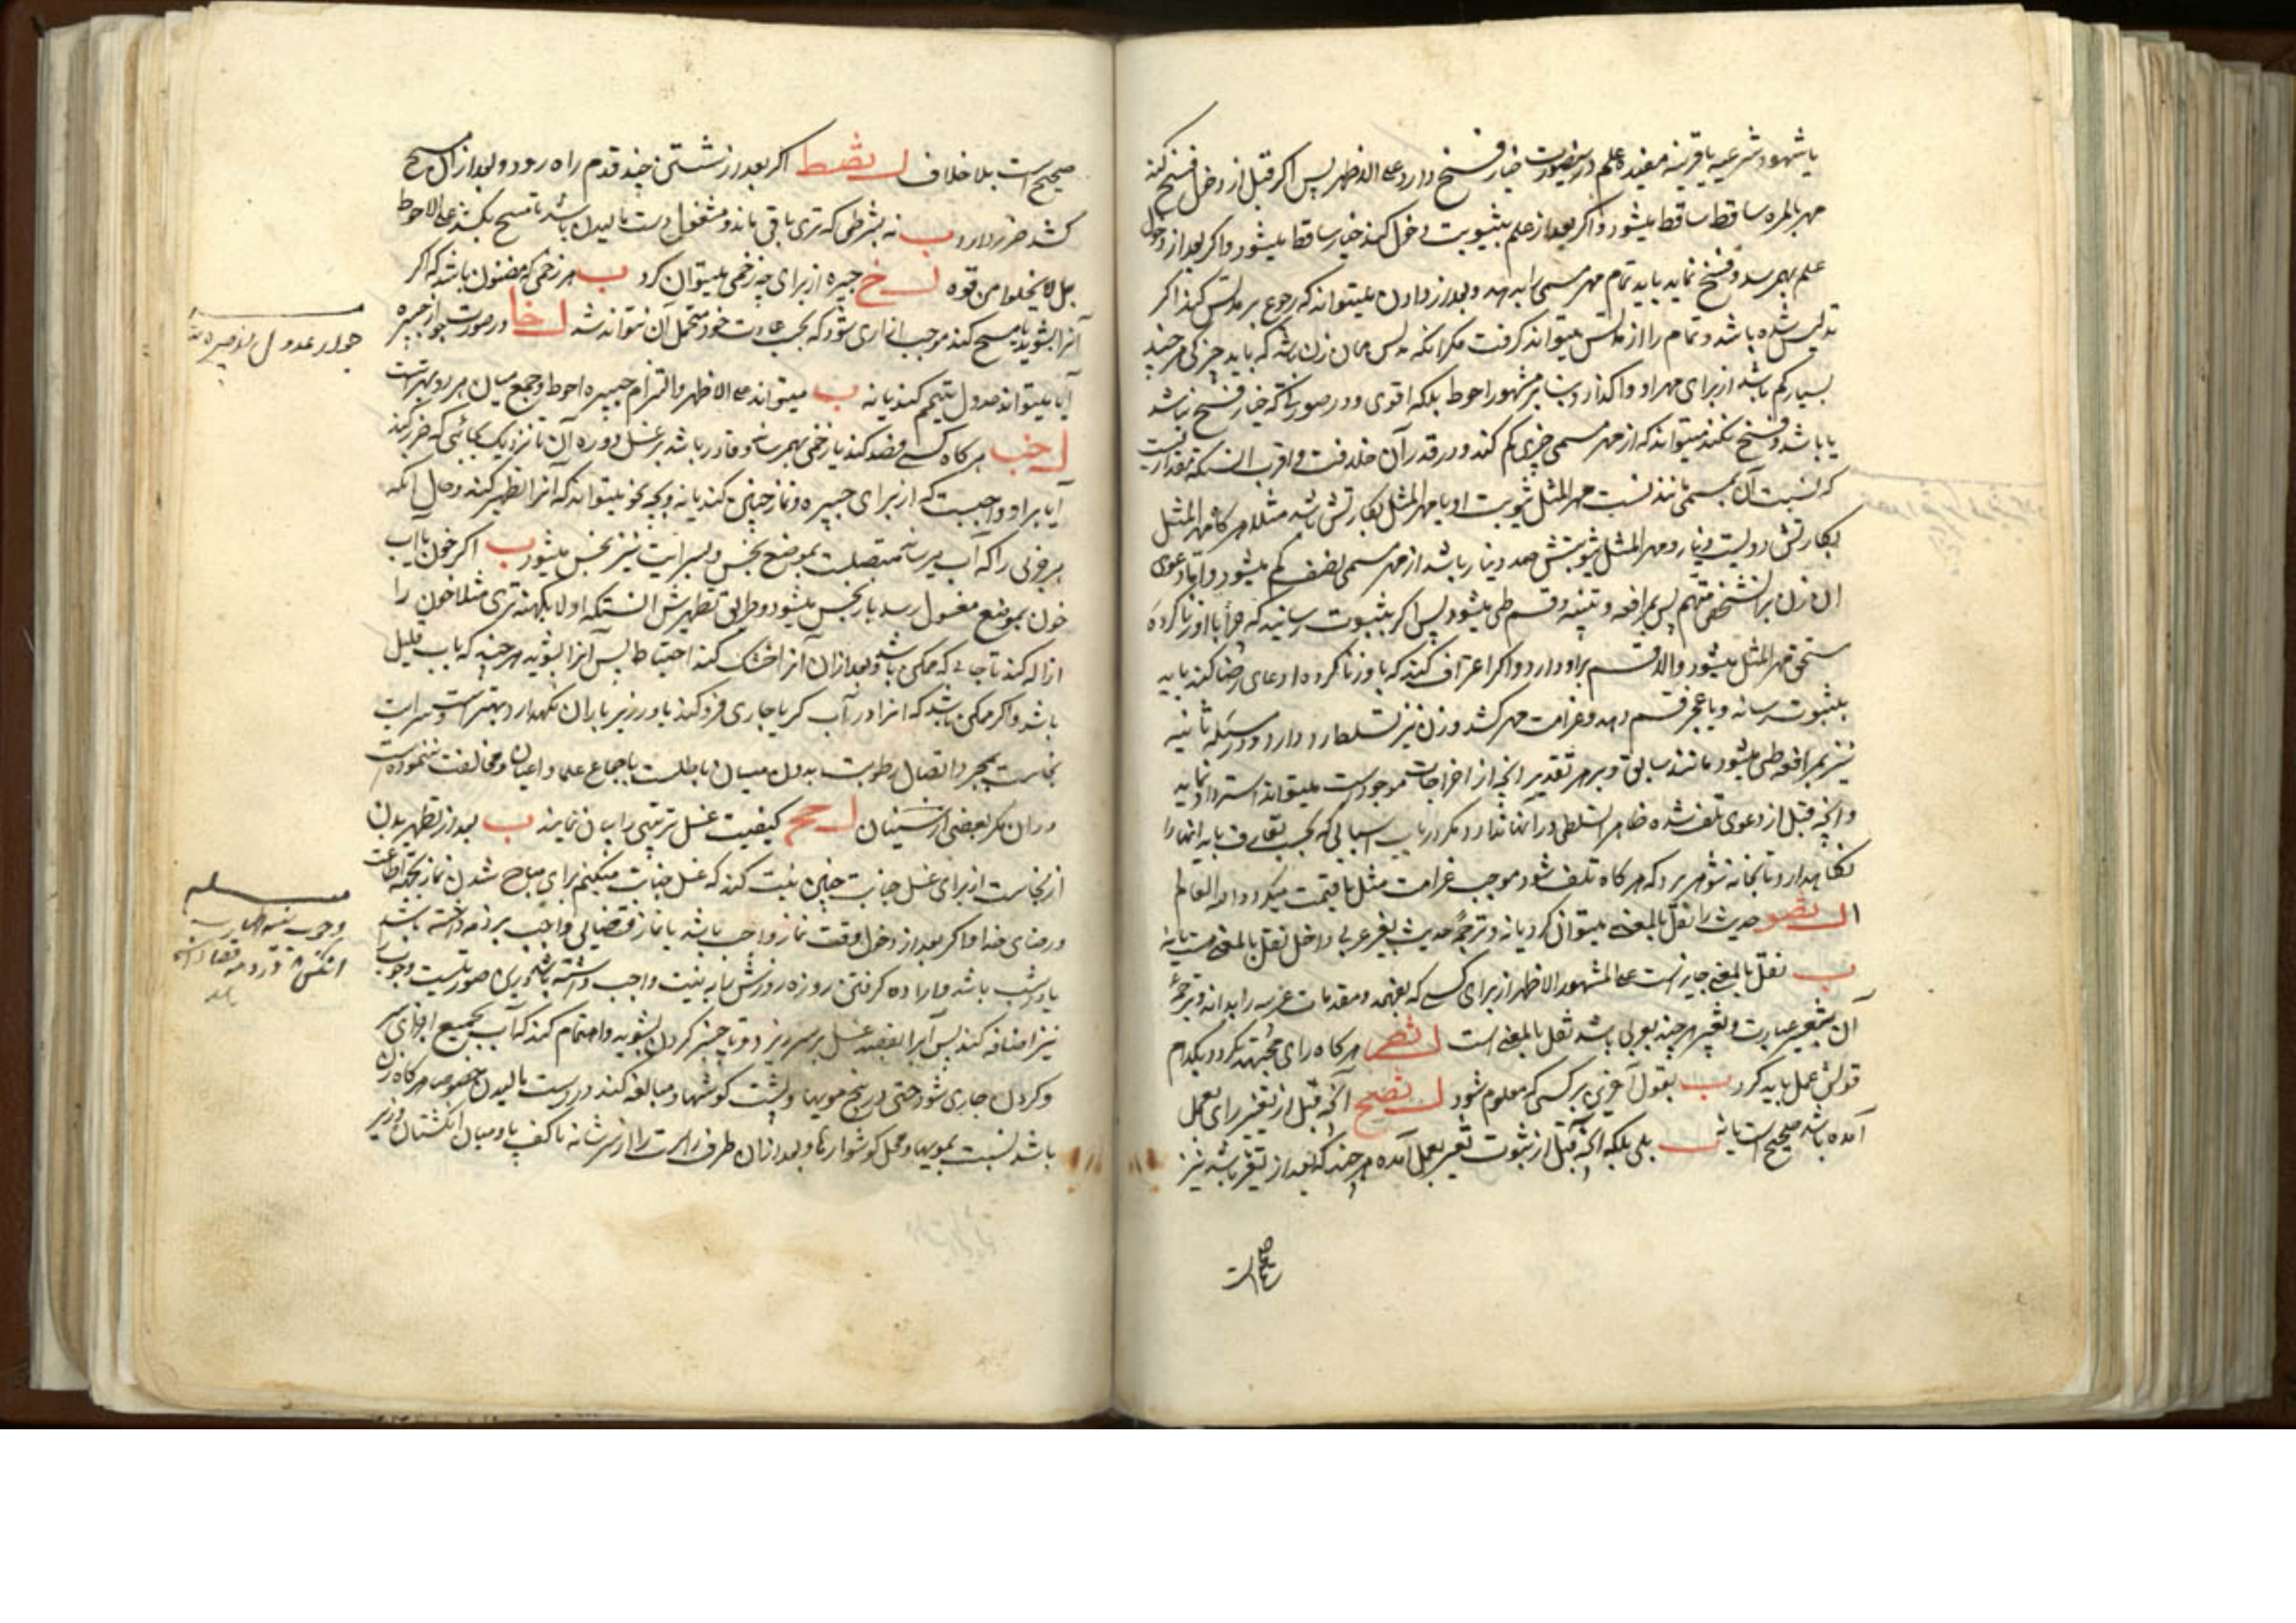 یا شهود شرعیه یا قرینه مفیده علم در اینصورت خیار فسخ دارد علی الاظهر پس اگر قبل از دخول فسخ کند
مهر بالمره ساقط میشود و اگر بعد از علم بثیوبت دخول کند خیار ساقط میشود و اگر بعد از دخول
علم بهم رسد و فسخ نماید باید تمام مهر مسمی را بدهد و بعد از دادن میتواند که رجوع بر مدلس کند اگر
تدلیس شده باشد و تمام را از مدلس میتواند گرفت مگر آنکه مدلس همان زن باشد که باید چیزکی هر چند
بسیار کم باشد از برای مهر او واگذارد بنا بر مشهور احوط بلکه اقوی و در صورتی که خیار فسخ نباشد
یا باشد و فسخ نکند میتواند که از مهر مسمی چیزی کم کند و در قدر آن خلافست و اقرب آنستکه بمقداریست
که نسبت آن بمسمی مانند نسبت مهر المثل ثیوبت او با مهر المثل بکارتش باشد مثلا هر گاه مهر المثل
بکارتش دویست دینار و مهر المثل ثیوبتش صد دینار باشد از مهر مسمی نصف کم میشود و اما دعوی
آن زن بر آنشخص متهم پس بمرافعه و بینه و قسم طی میشود پس اگر بثبوت رسانید که جبرا با او زنا کرده
مستحق مهر المثل میشود والا قسم بر او دارد و اگر اعتراف کند که با او زنا کرده و ادعای رضا کند باید
بثبوت رساند و یا عجز قسم دهد و غرامت مهر کشد و زن نیز تسلط دارد و در مسئله ثانیه
نیز بمرافعه طی میشود مانند سابق و بر هر تقدیر آنچه از اخراجات موجود است میتواند استرداد نماید
و آنچه قبل از دعوی تلف شده ظاهرا تسلطی در آنها ندارد مگر در باب اسبابی که بحسب تعارف باید آنها را
نگاهدارد و تا بخانه شوهر برد که هر گاه تلف شود موجب غرامت مثل یا قیمت میگردد والله العالم
حدیث را نقل بالمعنی میتوان کرد یا نه و ترجمه حدیث بغیر عربی داخل نقل بالمعنی هست یا نه
ب نقل بالمعنی جایز است علی المشهور الاظهر از برای کسی که بفهمد و مقدمات عربیه را بداند و ترجمه
آن بتغییر عبارت و تغییر هر چند بعربی باشد نقل بالمعنی است هر گاه رای مجتهد بگردد بکدام
قولش عمل باید کرد ب بقول آخری بر کسی که معلوم شود آنچه قبل از تغییر رای بعمل
آمده باشد صحیح است یا نه ب بلی بلکه آنچه قبل از ثبوت تغییر بعمل آمده هر چند که بعد از تغییر باشد نیز
صحیح است
صحیح است بلا خلاف اگر بعد از شستن چند قدم راه رود و بعد از آن مسح
کشد ضرر دارد ب نه بشرطی که تری باقی ماند و مشغول دست مالیدن باشد تا مسح بکشد علی الاحوط
بل لا یخلوا من قوة جبیره از برای چه زخمی میتوان کرد ب هر زخمی که مظنون باشد که اگر
آنرا بشوید یا مسح کند موجب آزاری شود که بحسب عادت خود متحمل آن نتواند شد ل خا در صورت جواز جبیره
آیا میتواند عدول بتیمم کند یا نه ب میتواند علی الاظهر و التزام جبیره احوط و جمع میان هر دو بهتر است
ل خب هر گاه کسی فصد کند یا زخمی بهم رساند و قادر باشد بر غسل دوره آن تا نزدیک بجائی که ضرر کند
آیا بر او واجبست که از برای جبیره و نماز چنین کند یا نه و بچه نحو میتواند که آنرا تطهیر کند و حال آنکه
هر جزئی را که آب میرساند متصلست بموضع نجس و بسرایت نیز نجس میشود ب اگر خون یا آب
خون بموضع مغسول رسد باز نجس میشود و طریق تطهیرش آنستکه اولا بکهنه تری مثلا خون را
ازاله کند تا جائی که ممکن باشد و بعد از آن آنرا خشک کند احتیاطا پس آنرا بشوید هر چند که بآب قلیل
باشد و اگر ممکن باشد که آنرا در آب کر یا جاری فرو کند یا در زیر باران نگهدارد بهتر است و سرایت
نجاست بمجرد اتصال رطوبت بدون سیلان باطلست باجماع علما و اعیان و مخالفت ننموده است
در آن مگر بعضی از سنیان کیفیت غسل ترتیبی را بیان نمایند ب بعد از تطهیر بدن
از نجاست از برای غسل جنابت چنین نیت کند که غسل جنابت میکنم برای مباح شدن نماز بجهة اطاعت
و رضای خدا و اگر بعد از دخول وقت نماز واجب باشد یا نماز قضائی واجب بر ذمه داشته باشد
یا در شب باشد و اراده گرفتن روزه روزش باید نیت واجب داشته باشد در این صورت نیت وجوب را
نیز اضافه کند پس آب را بقصد غسل بر سر ریزد و با چنبر گردن بشوید و اهتمام کند که آب بجمیع اجزای سر
و گردن جاری شود حتی در بیخ مویها و پشت گوشها و مبالغه کند در دست مالیدن خصوصا هر گاه زن
باشد نسبت بمویها و محل گوشوارها و بعد از آن طرف راست را از سر شانه تا کف پا و میان انگشتان و زیر
جواز عدول از جبیره
مسئله
وجوب نیة